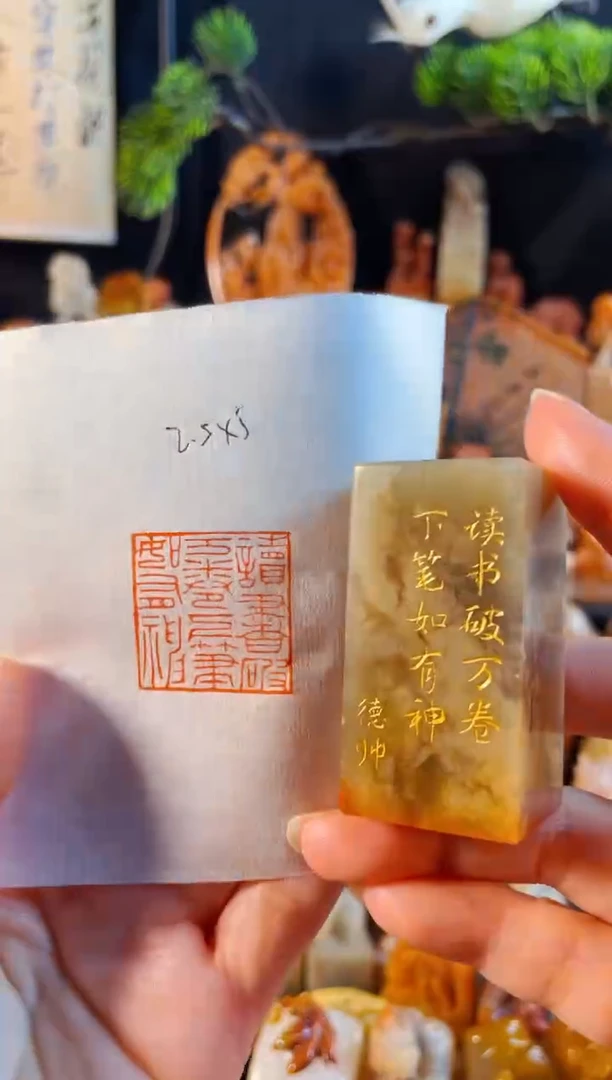 2.5x5
讀書破
万卷下筆
如有神
读书破万卷
下笔如有神
德帅